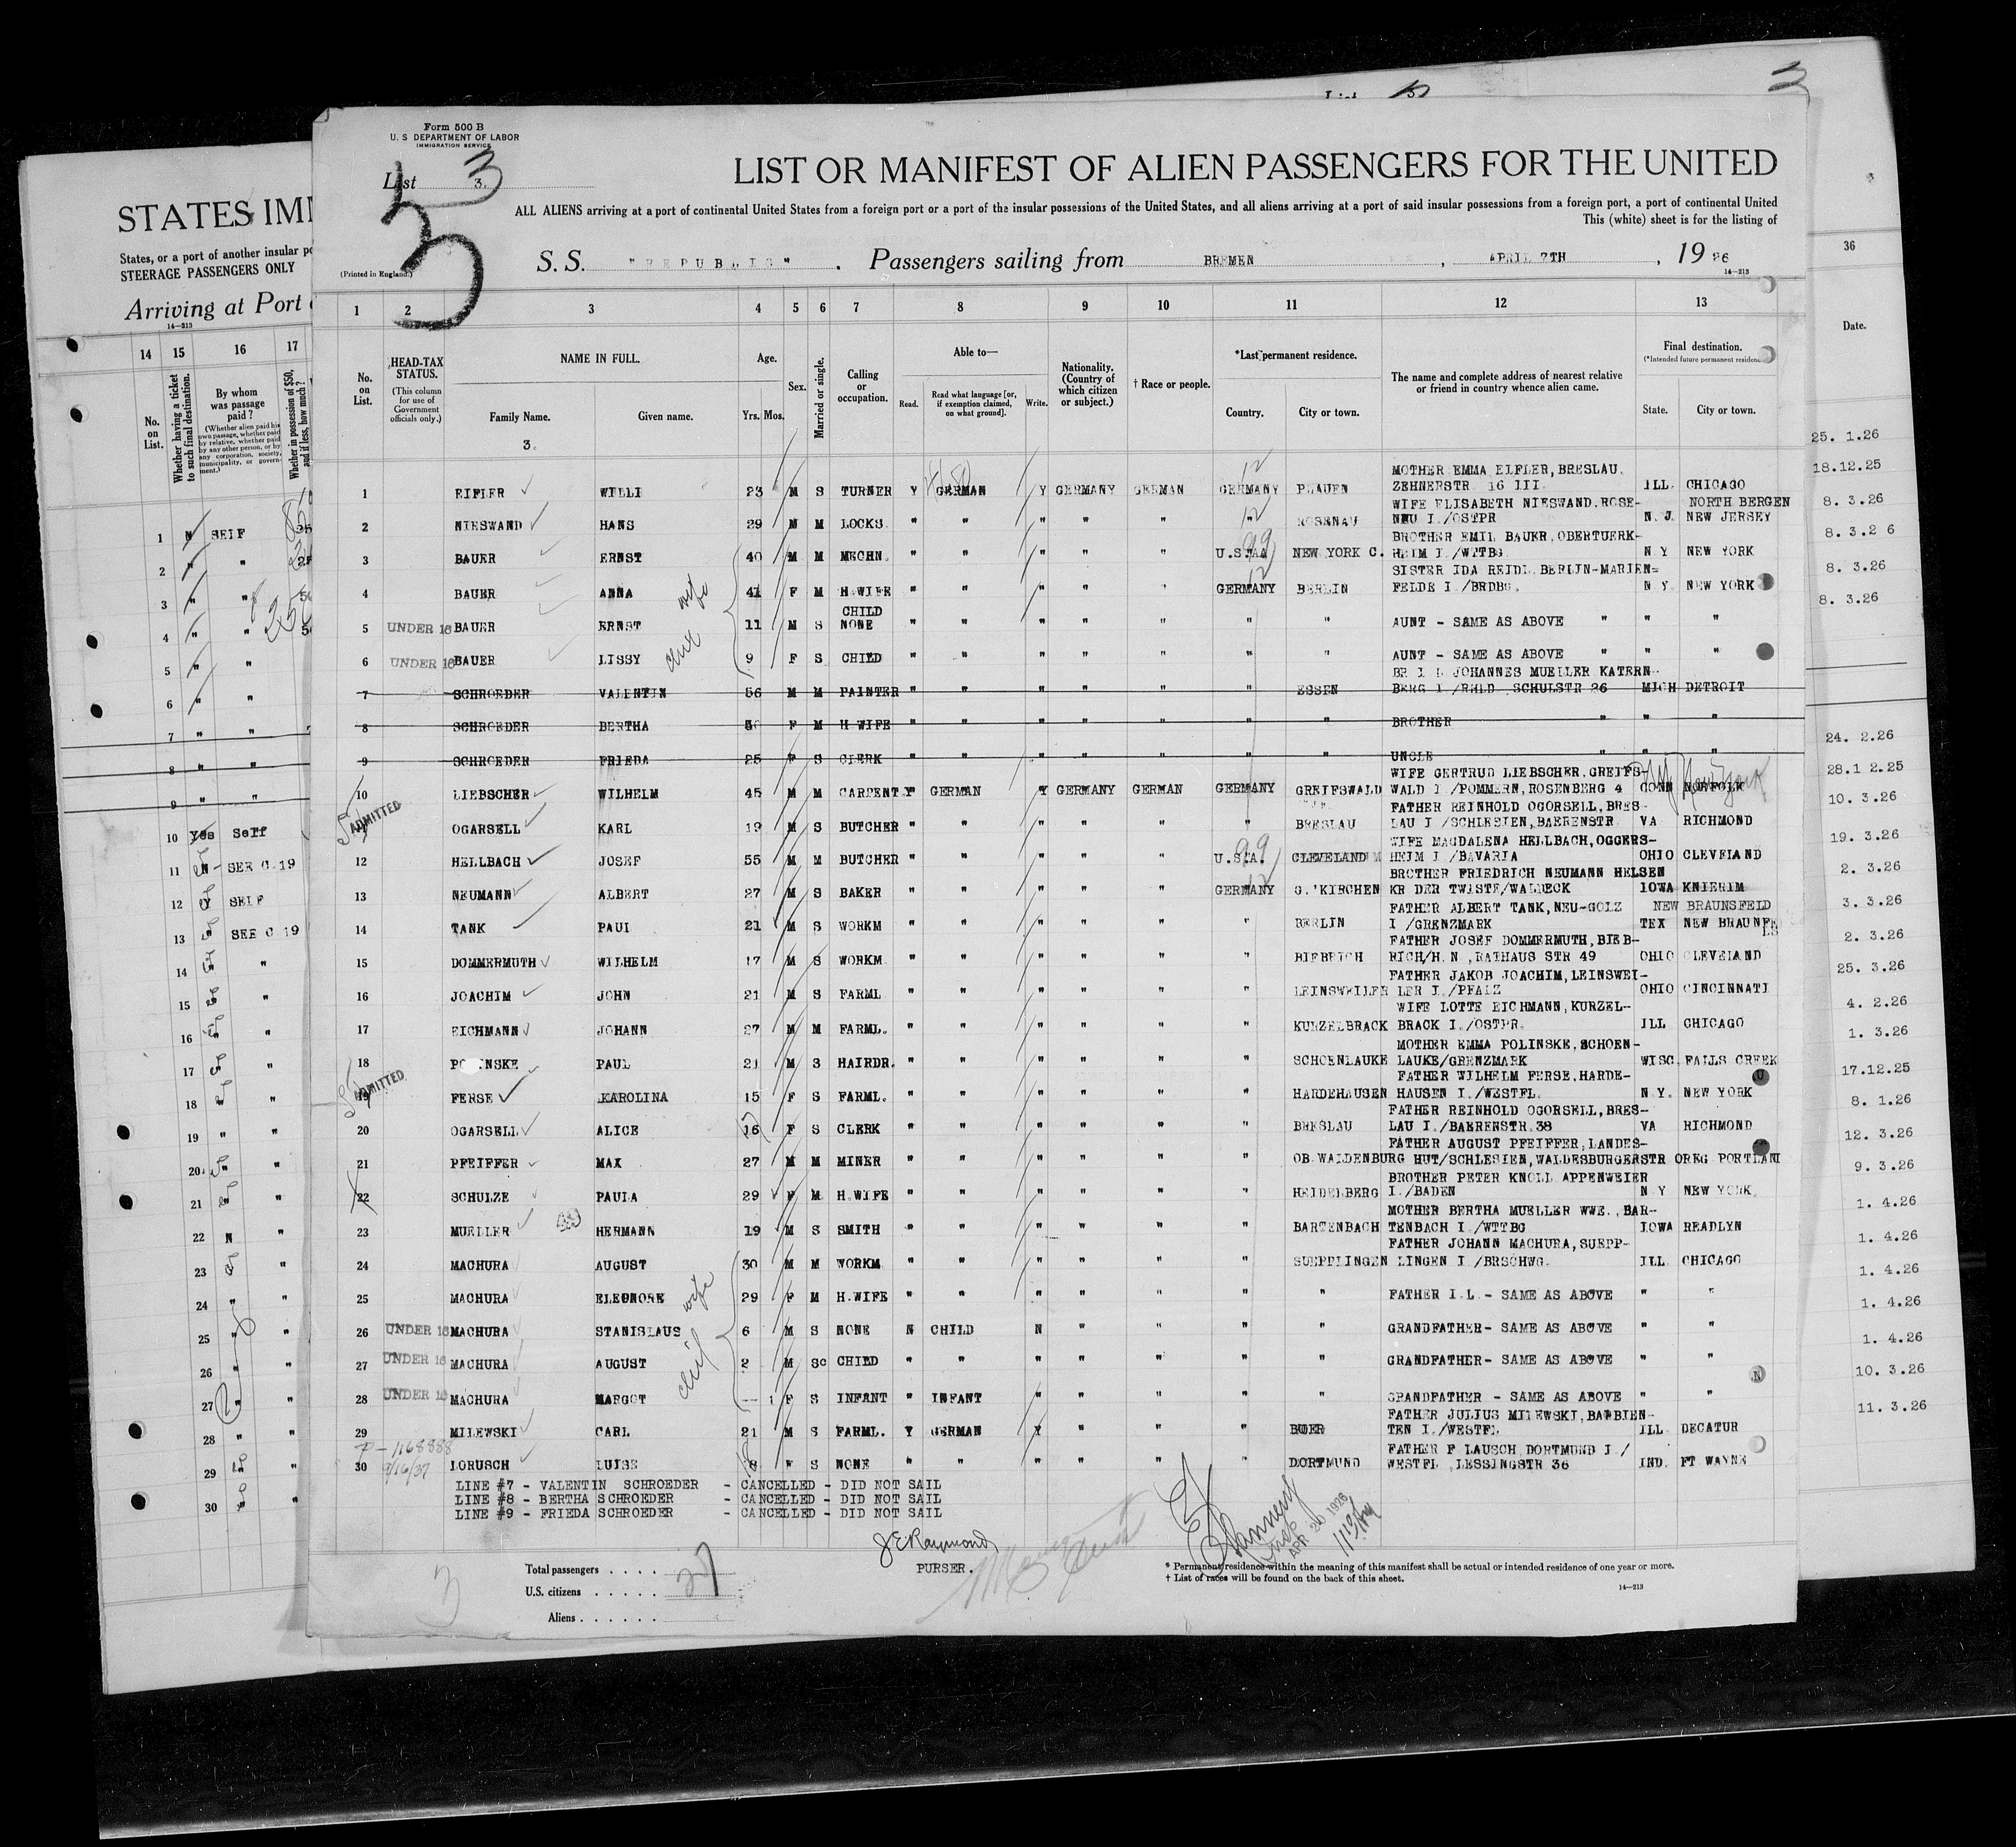 Form 500 B
U. S DEPARTMENT OF LABOR
IMMIGRATION SERVICE
List 3. 3
3
3
LIST OR MANIFEST OF ALIEN PASSENGERS FOR THE UNITED
ALL ALIENS arriving at a port of continental United States from a foreign port or a port of the insular possessions of the United States, and all aliens arriving at a port of said insular possessions from a foreign port, a port of continental United
This (white) sheet is for the listing of
(Printed in England.)
S. S. "REPUBLIC" . Passengers sailing from BREMEN , APRIL 7TH , 19 26
14—213
STATES IM
States, or a port of another insular
STEERAGE PASSENGERS ONLY
Arriving at Port
14—213
14 15 16 17
No. on List.
Whether having a ticket to such final destination.
By whom was passage paid?
(Whether alien paid his own passage, whether paid by relative, whether paid by any other person, or by any corporation, society, municipality, or government.)
Whether in possession of $50, and if less, how much?
1 2 3 4 5 6 7 8 9 10 11 12 13
No. on List.
HEAD-TAX STATUS.
(This column for use of Government officials only.)
NAME IN FULL.
Family Name. Given name.
3.
Age.
Yrs. Mos.
Sex.
Married or single.
Calling or occupation.
Able to—
Read. Read what language [or, if exemption claimed, on what ground]. Write.
Nationality. (Country of which citizen or subject.)
† Race or people.
*Last permanent residence.
Country. City or town.
The name and complete address of nearest relative or friend in country whence alien came.
Final destination.
(*Intended future permanent residence
State. City or town.
36
Date.
MOTHER EMMA EIFLER, BRESLAU.
1 EIFLER WILLI 23 M S TURNER Y GERMAN Y GERMANY GERMAN GERMANY PLAUEN ZEHNERSTR 16 III ILL. CHICAGO
WIFE ELISABETH NIESWAND, ROSE- NORTH BERGEN
2 NIESWAND HANS 29 M M LOCKS. " " " " " " ROSENAU NAU I./OSTPR N. J. NEW JERSEY
BROTHER EMIL BAUER, OBERTUERK-
3 BAUER ERNST 40 M M MECHN. " " " " " U.S.A. NEW YORK C. HEIM I./WTTBG. N Y NEW YORK
SISTER IDA REIDL BERLIN-MARIEN=
4 BAUER ANNA wife 41 F M H.WIFE " " " " " GERMANY BERLIN FELDE I./BRDBG. N Y. NEW YORK
CHILD
5 UNDER 16 BAUER ERNST 11 M S NONE " " " " " " " AUNT - SAME AS ABOVE " " "
6 UNDER 16 BAUER LISSY 9 F S CHILD " " " " " " " AUNT - SAME AS ABOVE " " "
BR I L JOHANNES MUELLER KATERN-
7 SCHROEDER VALENTIN 56 M M PAINTER " " " " " " ESSEN BERG I /RHLD SCHULSTR 26 MICH DETROIT
8 SCHROEDER BERTHA F M H WIFE " " " " " " " BROTHER " " "
9 SCHROEDER FRIEDA 25 F S CLERK " " " " " " " UNCLE " " "
WIFE GERTRUD LIEBSCHER, GREIFS- New York
10 LIEBSCHER WILHELM 45 M M CARPENT. Y GERMAN Y GERMANY GERMAN GERMANY GREIFSWALD WALD I /POMMERN, ROSENBERG 4 CONN NORFOLK
FATHER REINHOLD OGORSELL, BRES-
ADMITTED OGARSELL KARL 19 M S BUTCHER " " " " " " BRESLAU LAU I /SCHLESIEN, BAERENSTR VA RICHMOND
WIFE MAGDALENA HELLBACH, OGGERS-
12 HELLBACH JOSEF 55 M M BUTCHER " " " " " U.S.A. CLEVELAND HEIM I./BAVARIA OHIO CLEVELAND
BROTHER FRIEDRICH NEUMANN HELSEN
13 NEUMANN ALBERT 27 M S BAKER " " " " " GERMANY G.'KIRCHEN KR DER TWISTE/WALDECK IOWA KNIERIM
FATHER ALBERT TANK, NEU-GOLZ NEW BRAUNSFELD
14 TANK PAUL 21 M S WORKM " " " " " " BERLIN I /GRENZMARK TEX NEW BRAUNFELS
FATHER JOSEF DOMMERMUTH, BIEB-
15 DOMMERMUTH WILHELM 17 M S WORKM. " " " " " " BIEBRICH RICH/H.N, RATHAUS STR 49 OHIO CLEVELAND
FATHER JAKOB JOACHIM, LEINSWEI-
16 JOACHIM JOHN 21 M S FARML " " " " " " LEINSWEILER LER I./PFALZ OHIO CINCINNATI
WIFE LOTTE EICHMANN, KURZEL-
17 EICHMANN JOHANN 27 M M FARML. " " " " " " KURZELBRACK BRACK I./OSTPR. ILL CHICAGO
MOTHER EMMA POLINSKE, SCHOEN-
18 PO NSKE PAUL 21 M S HAIRDR. " " " " " " SCHOENLAUKE LAUKE/GRENZMARK WISC. FALLS CREEK
FATHER WILHELM FERSE, HARDE-
19 ADMITTED FERSE KAROLINA 15 F S FARML. " " " " " " HARDEHAUSEN HAUSEN I./WESTFL. N.Y. NEW YORK
FATHER REINHOLD OGORSELL, BRES-
20 OGARSELL ALICE 16 F S CLERK " " " " " " BRESLAU LAU I./BAERENSTR.38 VA RICHMOND
FATHER AUGUST PFEIFFER, LANDES-
21 PFEIFFER MAX 27 M M MINER " " " " " " OB WALDENBURG HUT/SCHLESIEN, WALDESBURGERSTR OREG PORTLAND
BROTHER PETER KNOLL APPENWEIER
22 SCHULZE PAULA 29 F M H.WIFE " " " " " " HEIDELBERG I./BADEN N Y NEW YORK.
MOTHER BERTHA MUELLER WWE., BAR-
23 MUELLER HERMANN 19 M S SMITH " " " " " " BARTENBACH TENBACH I./WTTBG IOWA READLYN
FATHER JOHANN MACHURA, SUEPP-
24 MACHURA AUGUST 30 M M WORKM " " " " " " SUEPPLINGEN LINGEN I./BRSCHWG. ILL. CHICAGO
25 MACHURA ELEONORE wife 29 F M H.WIFE " " " " " " " FATHER I.L. - SAME AS ABOVE " "
26 UNDER 16 MACHURA STANISLAUS 6 M S NONE N CHILD N " " " " GRANDFATHER- SAME AS ABOVE " "
27 UNDER 16 MACHURA AUGUST 2 M S CHILD " " " " " " " GRANDFATHER- SAME AS ABOVE " "
28 UNDER 16 MACHURA MARGOT — 1 F S INFANT " INFANT " " " " " GRANDFATHER - SAME AS ABOVE " "
FATHER JULIUS MILEWSKI, BAUBIEN-
29 MILEWSKI CARL 21 M S FARML. Y GERMAN Y " " " BUER TEN I./WESTFL. ILL. DECATUR
7-1168888
FATHER F LAUSCH DORTMUND I./
30 9/16/37 LORUSCH LUISE F S NONE " " " " " " DORTMUND WESTFL LESSINGSTR 36 IND. FT WAYNE
LINE #7 - VALENTIN SCHROEDER - CANCELLED - DID NOT SAIL
LINE #8 - BERTHA SCHROEDER - CANCELLED - DID NOT SAIL
LINE #9 - FRIEDA SCHROEDER - CANCELLED - DID NOT SAIL
J E Raymond
PURSER.
Total passengers . . . . 27
U.S. citizens . . . . .
Aliens . . . . . .
3
APR 20 1926
* Permanent residence within the meaning of this manifest shall be actual or intended residence of one year or more.
† List of races will be found on the back of this sheet.
14—213
1 N SELF
2 " "
3 " "
4 " "
5 " "
6 " "
7 " "
8 " "
9 " "
10 Yes Self
11 N - SEE C.19
12 Y SELF
13 SEE C 19
14 "
15 "
16 "
17 "
18 "
19 " "
20 "
21 "
22 N "
23 "
24 " "
25 " "
26 " "
27 " "
28 " "
29 "
30 "
25. 1.26
18.12.25
8. 3.26
8. 3.2 6
8. 3.26
8. 3.26
24. 2.26
28.1 2.25
10. 3.26
19. 3.26
2. 3.26
3. 3.26
2. 3.26
25. 3.26
4. 2.26
1. 3.26
17.12.25
8. 1.26
12. 3.26
9. 3.26
1. 4.26
1. 4.26
1. 4.26
1. 4.26
1. 4.26
10. 3.26
11. 3.26